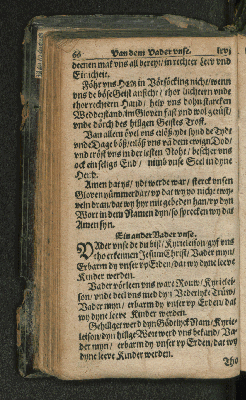 66 Van dem Vader vnse.
deenen mat vns all bereyt / in rechter Leev vnd
Einicheit.
Föhr vns HErr in Vörsöcking nicht / wenn
vns de böse Geist anficht / thor luchtern vnde
thor rechtern Hand / help vns dohn starcken
Wedderstand / im Gloven fast vnd wol gerüst /
vnde dörch des hilligen Geistes Trost.
Van allem övel vns erlöß / ydt synd de Tydt
vnde Dage böß / erlöß vns vam ewigen Dodt /
vnd tröst vns in der lesten Nodt / bescher vns
ock ein selig End / nimm vnse Seel in dyne
Hend.
Amen dat ys / ydt werde war / sterck vnsen
Gloven jümmerdar / vp dat wy yo nicht twy-
veln dran / dat wy hyr mit gebeden han / vp dyn
Wort in dem Namen dyn / so spreken wy dat
Amen fyn.
Ein ander Vader vnse.
VAder vnse de du bist / Kyrieleison gyff vns
tho erkennen Jesum Christ / Vader myn /
Erbarm dy vnser vp Erden / dat wy dyne leeve
Kinder werden.
Vader vörleen vns ware Rouw / Kyrielei-
son / vnde deel vns med dyn Vederlyke Trüw /
Vader myn / erbarm dy vnser vp Erden / dat
wy dyne leeve Kinder werden.
Gehilliget werd dyn Gödtlyck Nam / Kyrie-
leison / dyn hillige Wort werd vns bekand / Va-
der myn / erbarm dy vnser vp Erden / dat wy
dyne leeve Kinder werden.
Tho